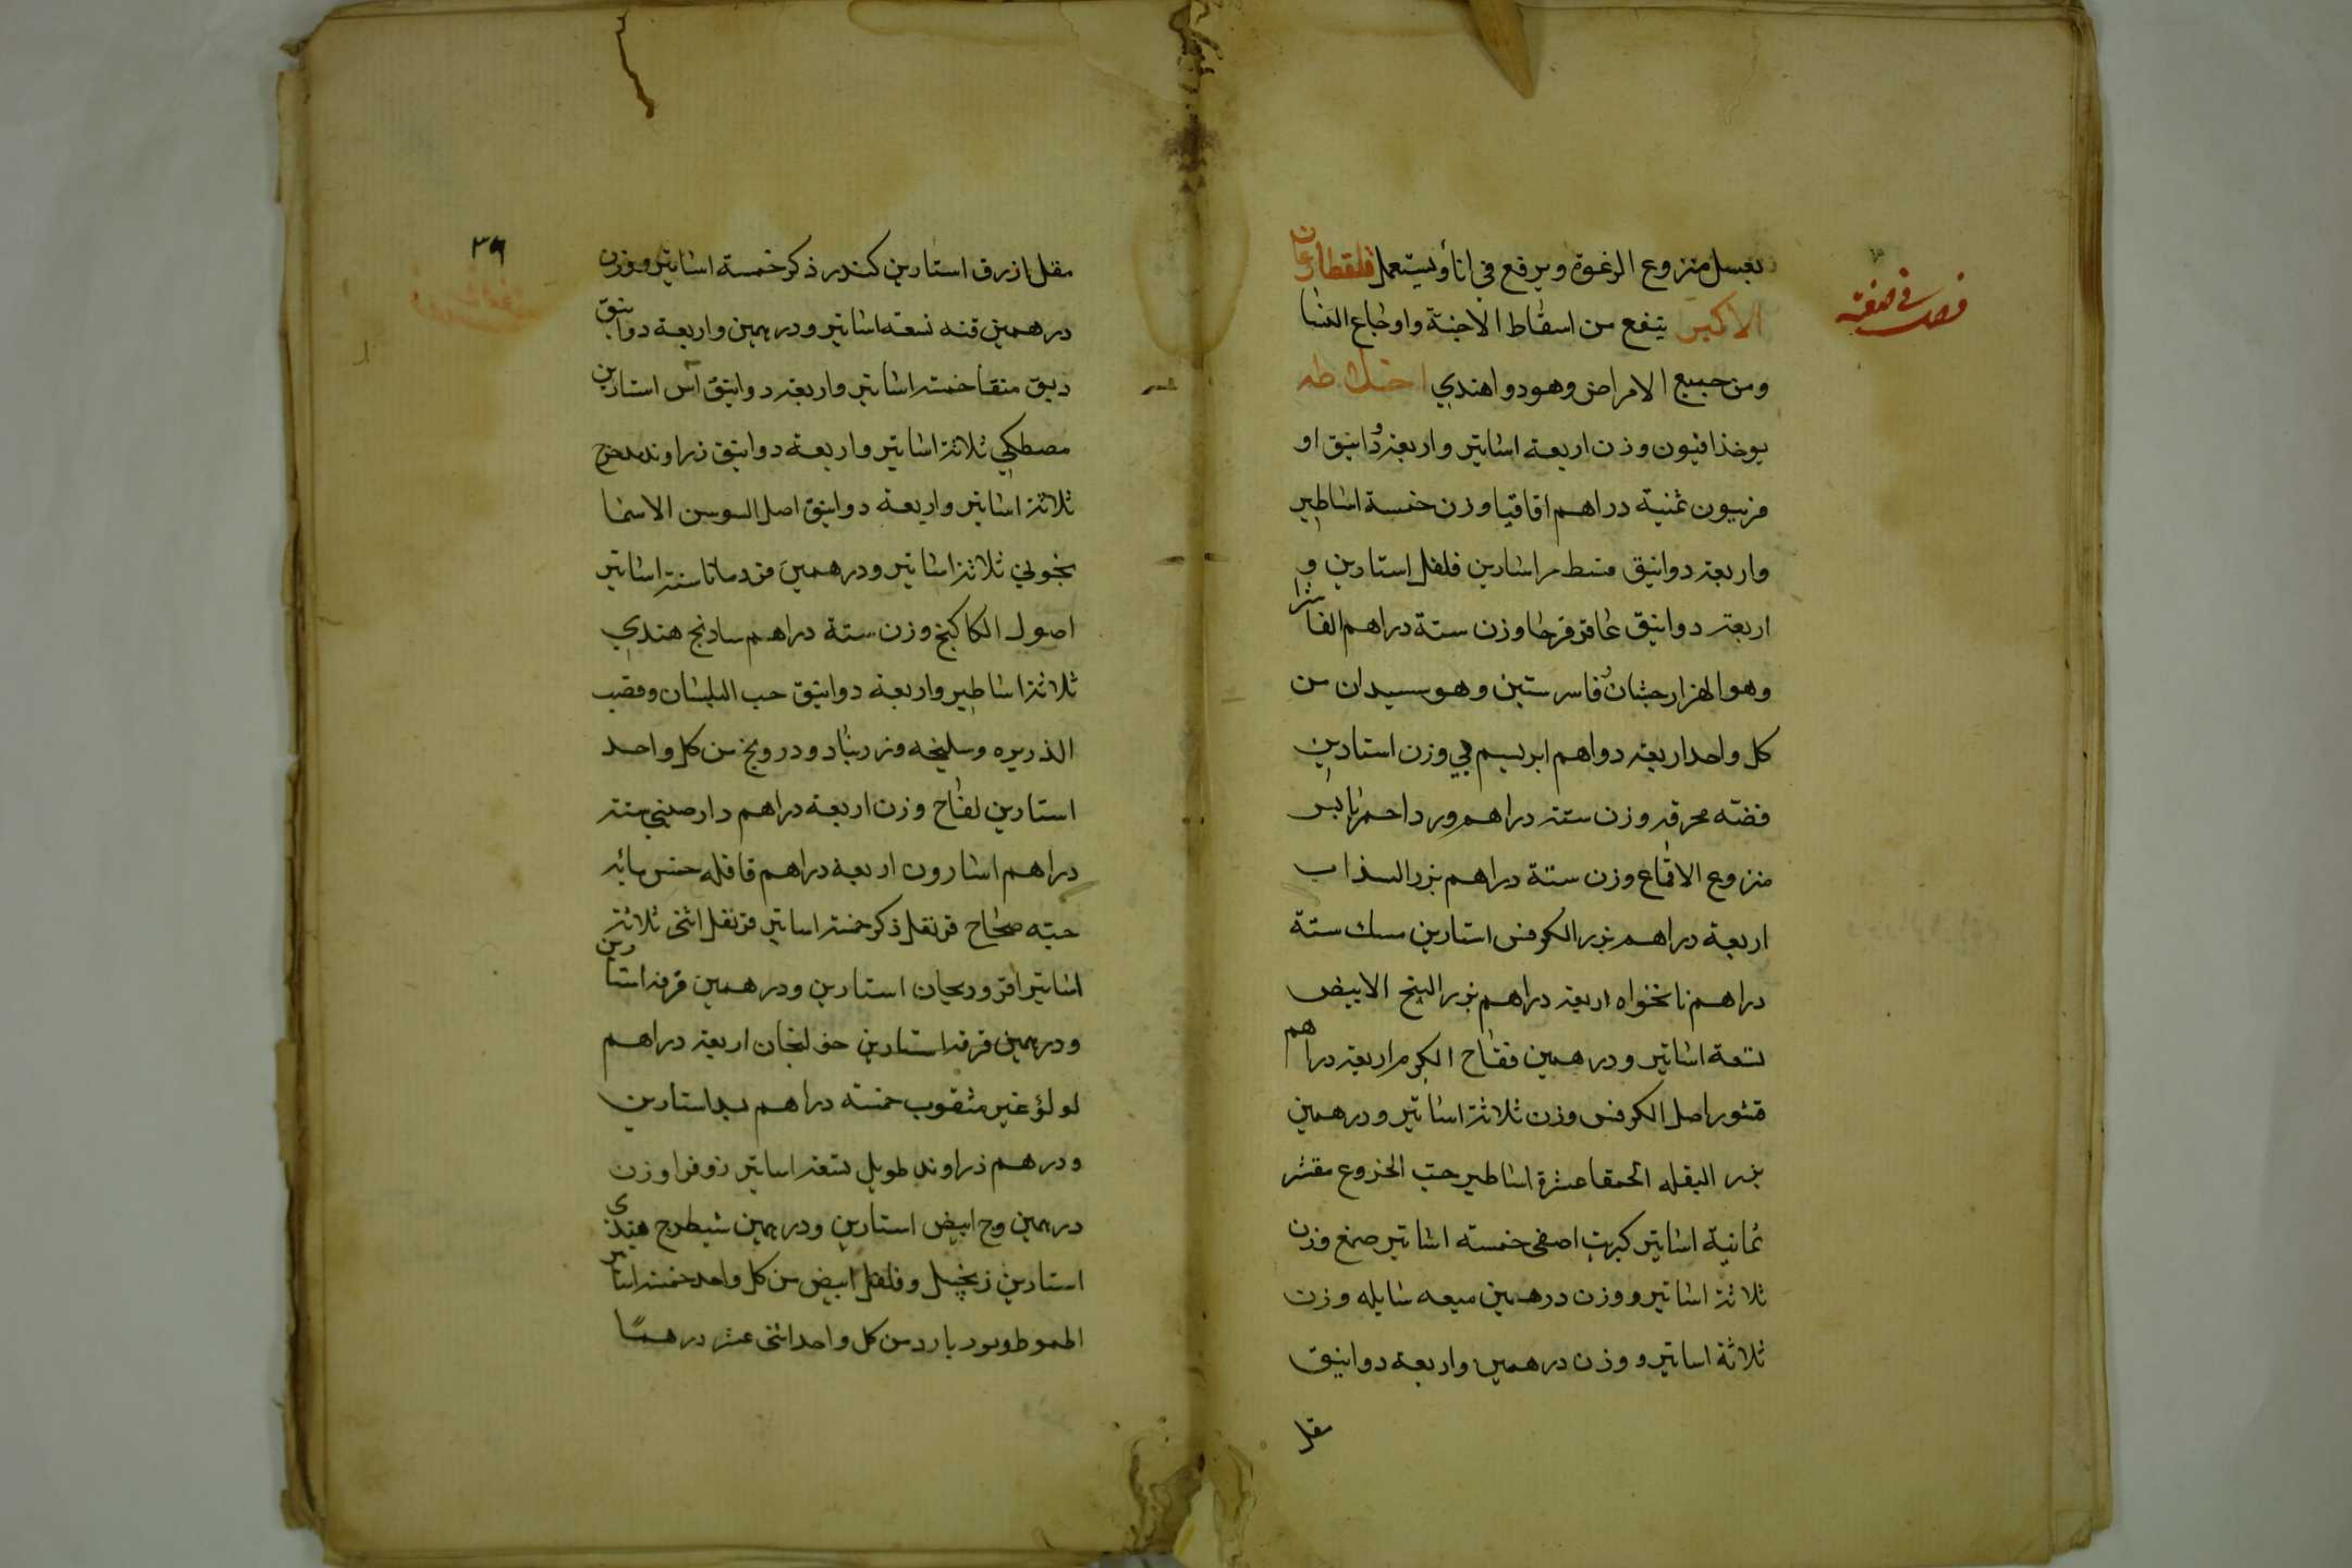 بعسل منزوع الرغوة ويرفع في انا ويستعمل فلقطارغان
الاكبر ينفع من اسقاط الاجنة واوجاع النسا
ومن جميع الامراض وهو دوا هندي اخلاطه
يوخذ افيون وزن اربعة اساتير واربعة دوانيق او
فربيون ثمنية دراهم اقاقيا وزن خمسة اساطير
واربعة دوانيق قسط مر استارين فلفل استارين و
اربعة دوانيق عاقر قرحا وزن ستة دراهم الفاشرا
وهو الهزارجشان وفاسرستين وهو سيدان من
كل واحد اربعة دواهم ابريسم في وزن استارين
فضة محرقة وزن ستة دراهم ورد احمر يابس
منزوع الاقماع وزن ستة دراهم بزر السذاب
اربعة دراهم بزر الكرفس استارين مسك ستة
دراهم نانخواه اربعة دراهم بزر البنج الابيض
تسعة اساتير ودرهمين فقاح الكرم اربعة دراهم
قشور اصل الكرفس وزن ثلاثة اساتير ودرهمين
بزر البقله الحمقا عشرة اساطير حب الخروع مقشر
ثمانية اساتير كبريت اصفر خمسة اساتير صمغ وزن
ثلاثة اساتير ووزن درهمين ميعه سايله وزن
ثلاثة اساتير ووزن درهمين واربعة دوانيق
مقل
فصل في صفة
٣٩
مقل ازرق استارين كندر ذكر خمسة اساتير ووزن
درهمين قنه تسعة اساتير ودرهمين واربعة دوانيق
دبق منقا خمسة اساتير واربعة دوانيق آس استارين
مصطكي ثلاثة اساتير واربعة دوانيق زراوند مدحرج
ثلاثة اساتير واربعة دوانيق اصل السوسن الاسما
نجوني ثلاثة اساتير ودرهمين قردمانا ستة اساتير
اصول الكاكنج وزن ستة دراهم سادنج هندي
ثلاثة اساطير واربعة دوانيق حب البلسان وقصب
الذريره وسليخه وزرنباد ودرونج من كل واحد
استارين لفاح وزن اربعة دراهم دارصيني ستة
دراهم اسارون اربعة دراهم قاقله خمس مائة
حبه صحاح قرنفل ذكر خمسة اساتير قرنفل انثى ثلاثة
اساتير افروديجان استارين ودرهمين قرفه استارين
ودرهمين قرفه استارين خولنجان اربعة دراهم
لولؤ غير مثقوب خمسة دراهم سداستارين
ودرهم زراوند طويل تسعة اساتير زوفرا وزن
درهمين وج ابيض استارين ودرهمين شيطرج هندي
استارين زنجبيل وفلفل ابيض من كل واحد خمسة اساتير
باردمن كل واحد اثنى عشر درهمًا